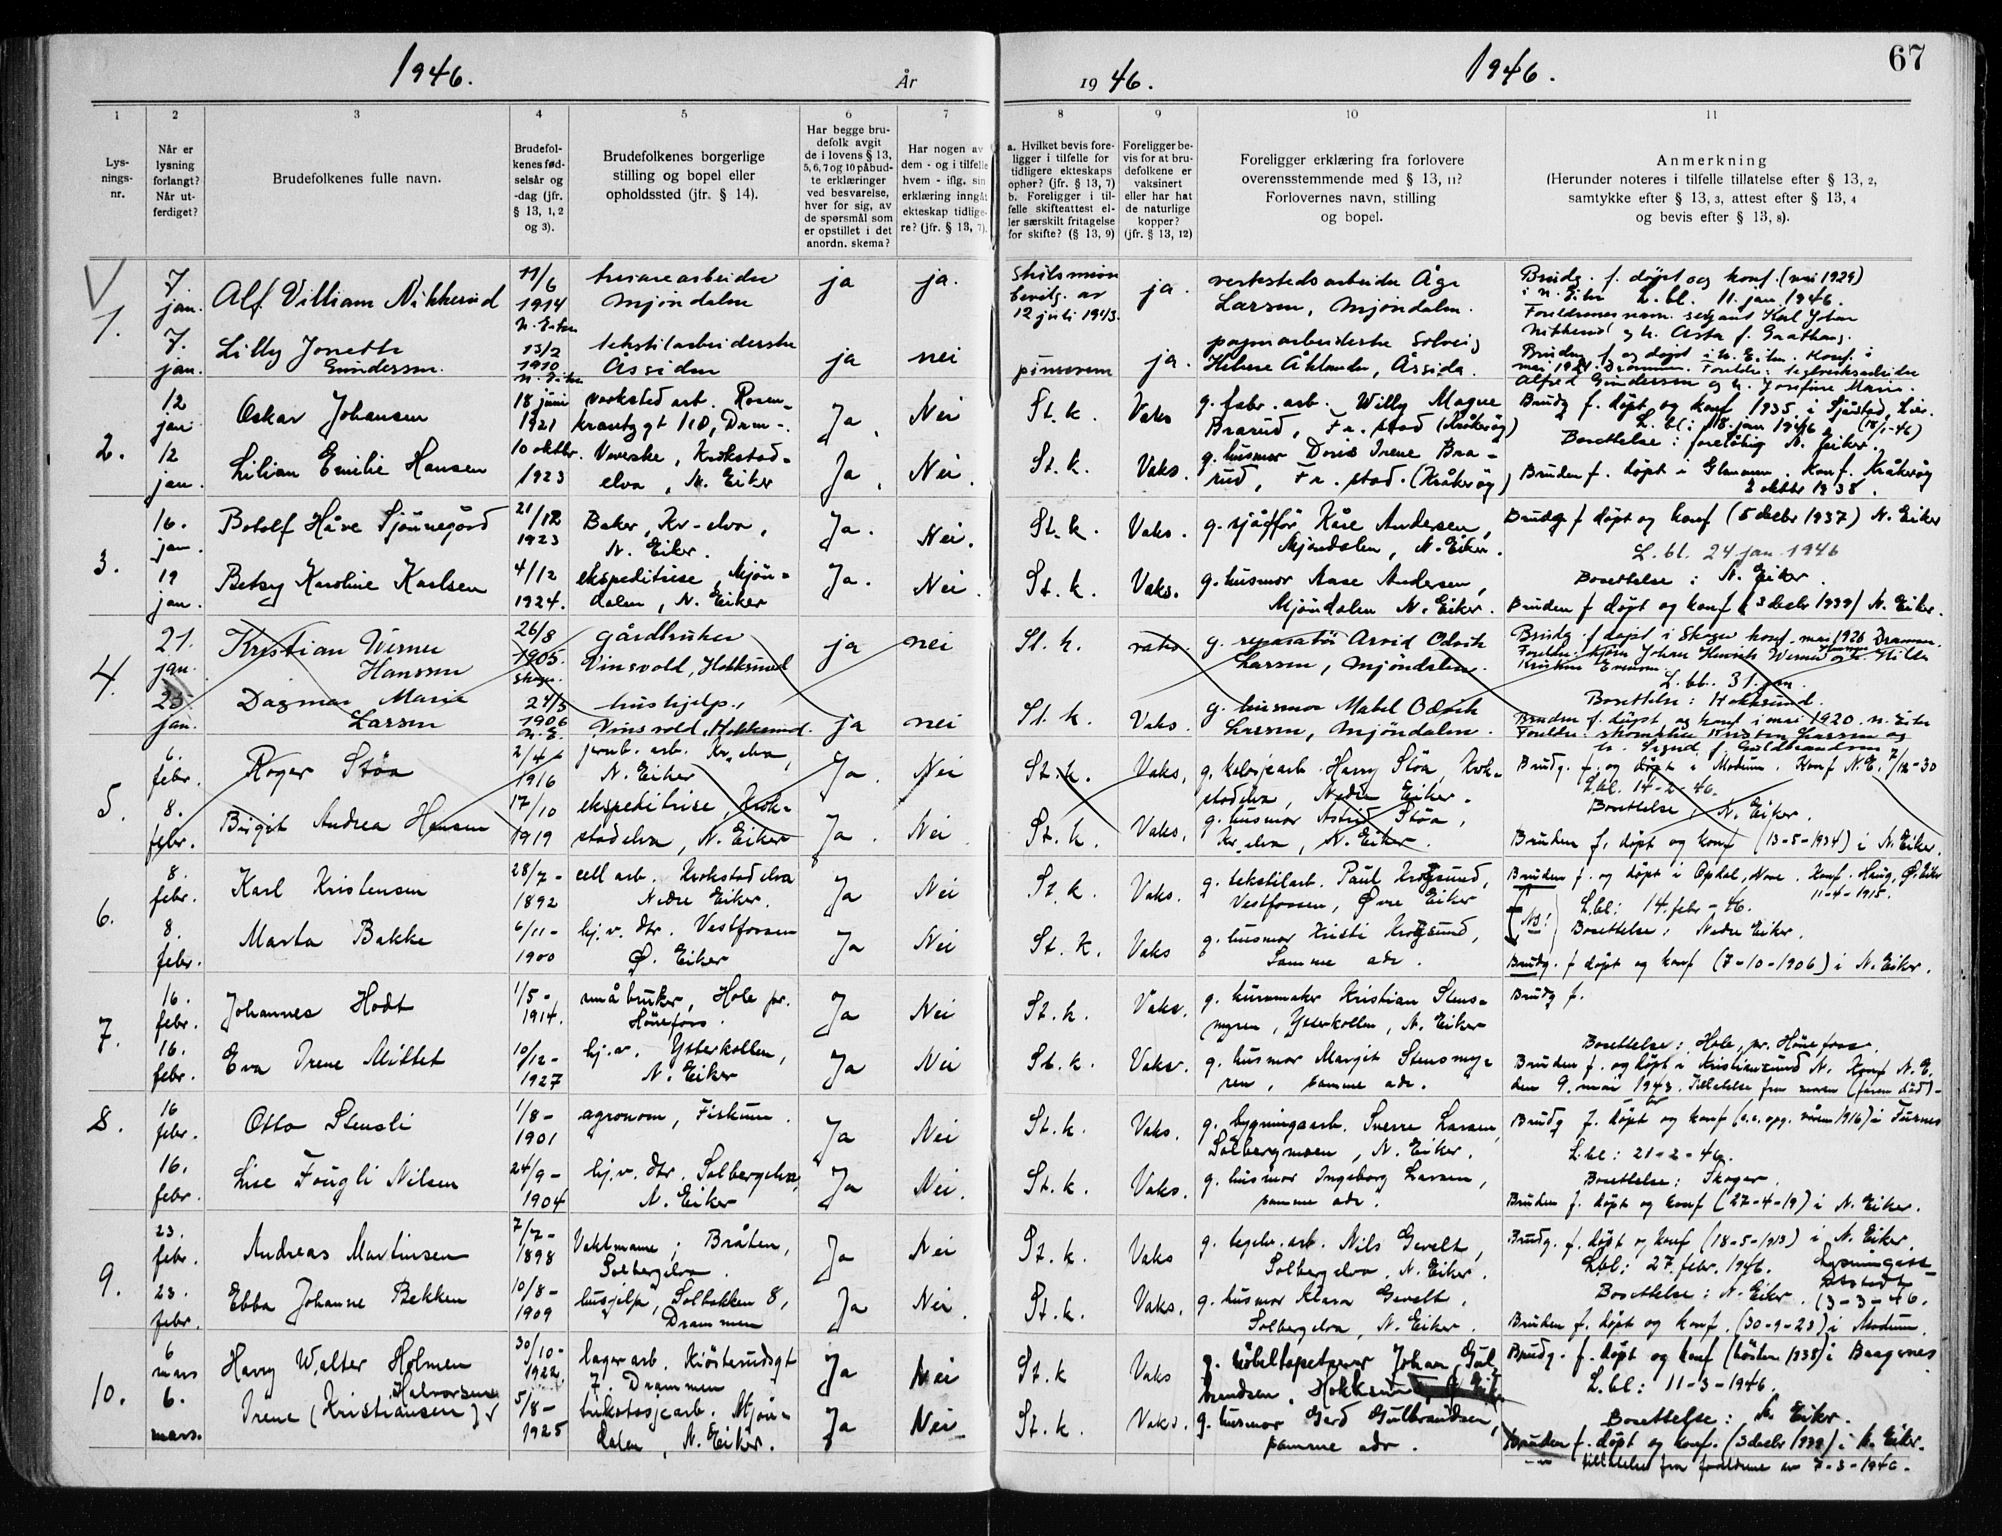 1946.
År
19 46.
1946.
67
1
2
3
4
5
6
7
8
9
10
11
Lys-
nings-
nr.
Når er
lysning
forlangt?
Når ut-
ferdiget?
Brudefolkenes fulle navn.
Brudefol-
kenes fød-
selsår og
-dag (jfr.
§ 13, 1, 2
og 3).
Brudefolkenes borgerlige
stilling og bopel eller
opholdssted (jfr. § 14).
Har begge bru-
defolk avgit
de i lovens § 13,
5, 6, 7 og 10 påbud-
te erklæringer
ved besvarelse,
hver for sig, av
de spørsmål som
er opstillet i det
anordn. skema?
Har nogen av
dem - og i tilfelle
hvem - iflg. sin
erklæring inngåt
ekteskap tidlige-
re? (jfr. § 13, 7).
a. Hvilket bevis fore-
ligger i tilfelle for
tidligere ekteskaps
ophør? (jfr. § 13, 7)
b. Foreligger i til-
felle skifteattest el-
ler særskilt fritagelse
for skifte? (§ 13, 9)
Foreligger be-
vis for at bru-
defolkene er
vaksinert
eller har hat
de naturlige
kopper?
(jfr. § 13, 12)
Foreligger erklæring fra forlovere
overensstemmende med § 13, 11?
Forlovernes navn, stilling
og bopel.
Anmerkning
(Herunder noteres i tilfelle tillatelse efter § 13, 2,
samtykke efter § 13, 3, attest efter § 13, 4
og bevis efter § 13, 8).
1.
7
jan.
Alf Villiam Nikkerud
11/6
1914
N. Eiker
Mjøndalen
ja
ja.
bevilg. av
12 juli 1943.
ja.
verkstedsarbeider Åge
Larsen, Mjøndalen.
Brudg. f. døpt og konf. (mai 1929)
i N. Eiker L. bl. 11. jan. 1946.
7.
jan.
Lilly Jonette
Gundersen.
13/2
1910
N. Eiker
tekstilarbeiderske
Åssiden
ja
nei
ja.
Alfred Gundersen og h. Josefine Marie.
2.
12
jan
Oskar Johansen
18 juni
1921
verksted arb. Rosen-
krantzgt 110, Dram-.
Ja.
Nei
St. k.
Vaks
g. fabr. arb. Willy Magne
Brarud, Fr. stad (Kråkerøy)
L. bl: 18. jan 1946
Bosettelse: foreløbig N. Eiker.
12
jan.
Lilian Emilie Hansen
10 oktbr.
1923
Veverske, Krokstad-
elva, N. Eiker
Ja.
Nei.
St. k.
Vaks.
g. husmor Doris Irene Bra-
rud, Fr. stad. (Kråkerøy)
Bruden f. døpt i Glemmen. Konf. Kråkerøy
2 oktbr 1938.
3.
16.
jan.
Botolf Håve Sjønnegård
21/12
1923
Baker, Kr-elva,
N. Eiker.
Ja.
Nei.
St. k.
Vaks.
g. sjåfør Kåre Andersen,
Mjøndalen, N. Eiker.
Brudg. f døpt og konf (5 decbr 1937) N. Eiker
L. bl. 24 jan 1946
Bosettelse: N. Eiker.
19
jan.
Betsy Karoline Karlsen
4/12
1924.
ekspeditrise, Mjøn-
dalen, N. Eiker
Ja.
Nei.
St. k.
Vaks.
g. husmor Aase Andersen,
Mjøndalen N. Eiker.
Bruden f døpt og konf (3 decbr 1939) N. Eiker.
4.
21.
jan.
Kristian Werner
Hanssen
26/8
1905.
Skoger
gårdbruker
Vinsvold, Hokksund
ja
nei
St. k.
vaks.
g. reparatør Arvid Odvik
Larsen, Mjøndalen.
L. bl. 31. jan.
Bosettelse: Hokksund.
23
jan.
Dagmar Marie
Larsen
24/3
1906
N. E.
hushjelp,
Vinsvold, Hokksund.
ja
nei
St. k.
Vaks.
g. husmor Mabel Odvik
Larsen, Mjøndalen.
Bruden f. døpt og konf i mai 1920. N. Eiker
5.
6.
febr.
Roger Støa
2/4-
1916
jernb. arb. Kr. elva,
N. Eiker
Ja.
Nei
St. k.
Vaks.
Harry Støa, Krok-
stadelva, Nedre Eiker.
Brudg. f. og døpt i Modum. Konf N.E. 7/12-30
L.bl. 14-2-46.
Bosettelse, N. Eiker.
8.
febr.
Birgit Andrea Hansen
17/10
1919
ekspeditrise, Krok-
stadelva, N. Eiker
Ja.
Nei
St. k.
Vaks.
g. husmor Astrid Støa,
Kr. elva, N. Eiker.
Bruden f. døpt og konf (13-5-1934) i N. Eiker.
6.
8.
febr.
Karl Kristensen
28/7-
1892
cell arb. Krokstadelva
Nedre Eiker.
Ja
Nei
St. k.
Vaks.
g. tekstilarb. Paul Krogsund,
Vestfossen, Øvre Eiker
Bruden f. og døpt i Opdal, Nore. Konf. Haug, Ø. Eiker
11-4-1915.
L.bl: 14. febr-46.
NB!
Bosettelse: Nedre Eiker.
8.
febr.
Marta Bakke
6/11-
1900
hj. v. dtr. Vestfossen
Ø. Eiker
Ja
Nei
St. k.
Vaks
g. husmor Kristi Krogsund,
Samme adr.
Brudg. f døpt og konf (7-10-1906) i N. Eiker.
7.
16.
febr.
Johannes Hodt
1/5-
1914.
småbruker, Hole pr.
Hønefoss.
Ja
Nei
St. k.
Vaks.
Kristian Stens-
myren, Ytterkollen, N. Eiker
Brudg f.
Bosettelse: Hole, pr. Hønefoss.
16.
febr.
Eva Irene Mittet
10/12-
1927
hj. v. Ytterkollen,
N. Eiker
Ja
Nei
St. k.
Vaks.
g. husmor Margit Stensmy-
ren, samme adr.
Bruden f. og døpt i Kristiansund N. Konf N. E.
den 9. mai 1943. Tillatelse fra moren (faren død)-
8.
16
febr.
Otto Stensli
1/8-
1901
agronom, Fiskum.
Ja
Nei
St. k.
Vaks.
g. bygningsarb. Sverre Larsen,
Solbergmoen, N. Eiker.
L.bl: 21-2-46.
Bosettelse: Skoger.
16.
febr.
Lise Fougli Nilsen
24/9-
1904
hj. v. dtr. Solbergelva,
N. Eiker
Ja
Nei.
St. k.
Vaks.
g. husmor Ingeborg Larsen,
samme adr.
Bruden f. døpt og konf (27-4-19) i N. Eiker.
9.
23.
febr.
Andreas Martinsen
7/7-
1898
Vaktmann, Bråten,
Solbergelva.
Ja
Nei
St. k.
Vaks
g. Nils Gevelt,
Solbergelva, N. Eiker.
Brudg. f. døpt og konf (18-5-1913) i N. Eiker.
L.bl: 27. febr. 1946.
Bosettelse: N. Eiker.
13-3-46.
23.
febr.
Ebba Johanne Bekken
10/8-
1909
husjelp, Solbakken 8,
Drammen
Ja
Nei.
St. k.
Vaks.
g. husmor Klara Gevelt.
Solbergelva, N. Eiker.
Bruden f. døpt og konf. (30-9-23) i Modum.
10.
6
mars
Harry Walter Holmen
30/10-
1922
lagerarb. Kiøsterudsgt
7. Drammen
Ja
Nei
St. k
Vaks
g. møbeltapetserer Johan Gul-
brandsen, Hokksund,
Brudg. f. døpt og konf (høsten 1938) i Bragernes
L.bl: 11-3-1946.
Bosettelse: N. Eiker.
6.
mars.
Halvorsen
Irene (Kristiansen)
5/8-
1925
Mjøn-
dalen, N. Eiker.
Ja
Nei
St. k.
Vaks.
g. husmor Gerd Gulbrandsen,
samme adr.
Bruden f. døpt og konf. (3 decbr 1939) i N. Eiker.
tillatelse fra foreldrene av 7-3-1946.